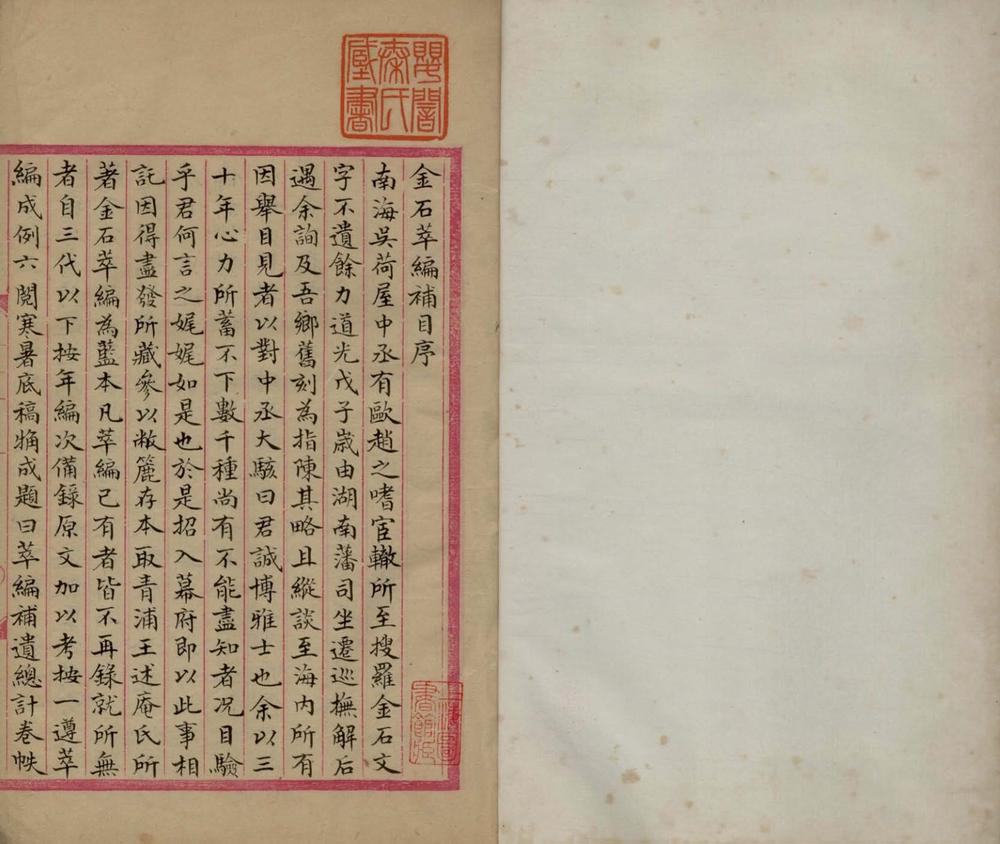 金石萃編補目序
南海吳荷屋中丞有歐趙之嗜宦轍所至搜羅金石文
字不遺餘力道光戊子歲由湖南藩司坐遷巡撫解后
遇余詢及吾鄉舊刻為指陳其略且縱談至海內所有
因舉目見者以對中丞大駭曰君誠博雅士也余以三
十年心力所蓄不下數千種尚有不能盡知者况目驗
乎君何言之娓娓如是也於是招入幕府即以此事相
託因得盡發所藏參以敝簏存本取青浦王述庵氏所
著金石萃編為藍本凡萃編已有者皆不再錄就所無
者自三代以下按年編次備錄原文加以考按一遵萃
編成例六閱寒暑底稿觕成題曰萃編補遺總計卷帙
嬰闇
秦氏
藏書